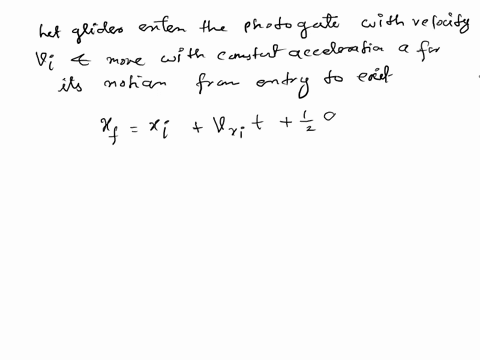 Let glider enter the photogate with velocity
v_i & move with constant acceleration a for
its motion from entry to exit
x_f = x_i + v_xi t + 1/2 a